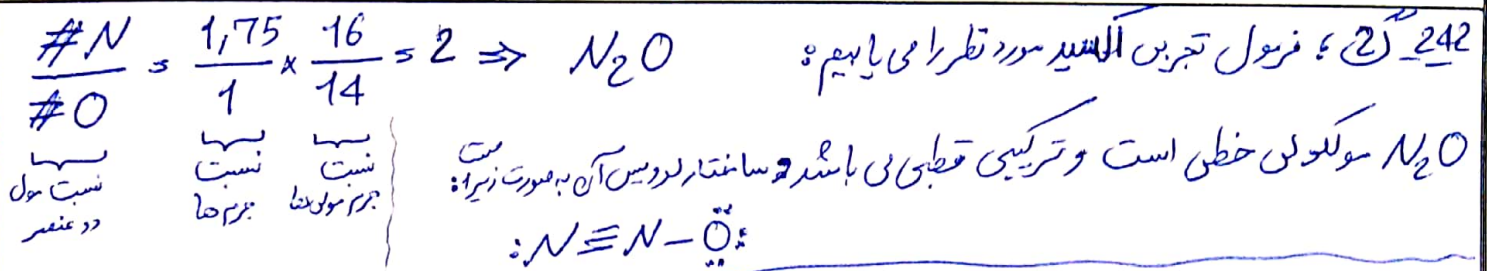 242_ گ 2 ؛ فرمول تجربی اکسید مورد نظر را می یابیم :
#N / #O = 1,75 / 1 × 16 / 14 = 2 ⇒ N₂O
نسبت مول دو عنصر
نسبت جرم ها
نسبت جرم مولی ها
N₂O مولکولی خطی است و ترکیبی قطبی می باشد و ساختار لوویس آن به صورت زیر است :
:N≡N–Ö: